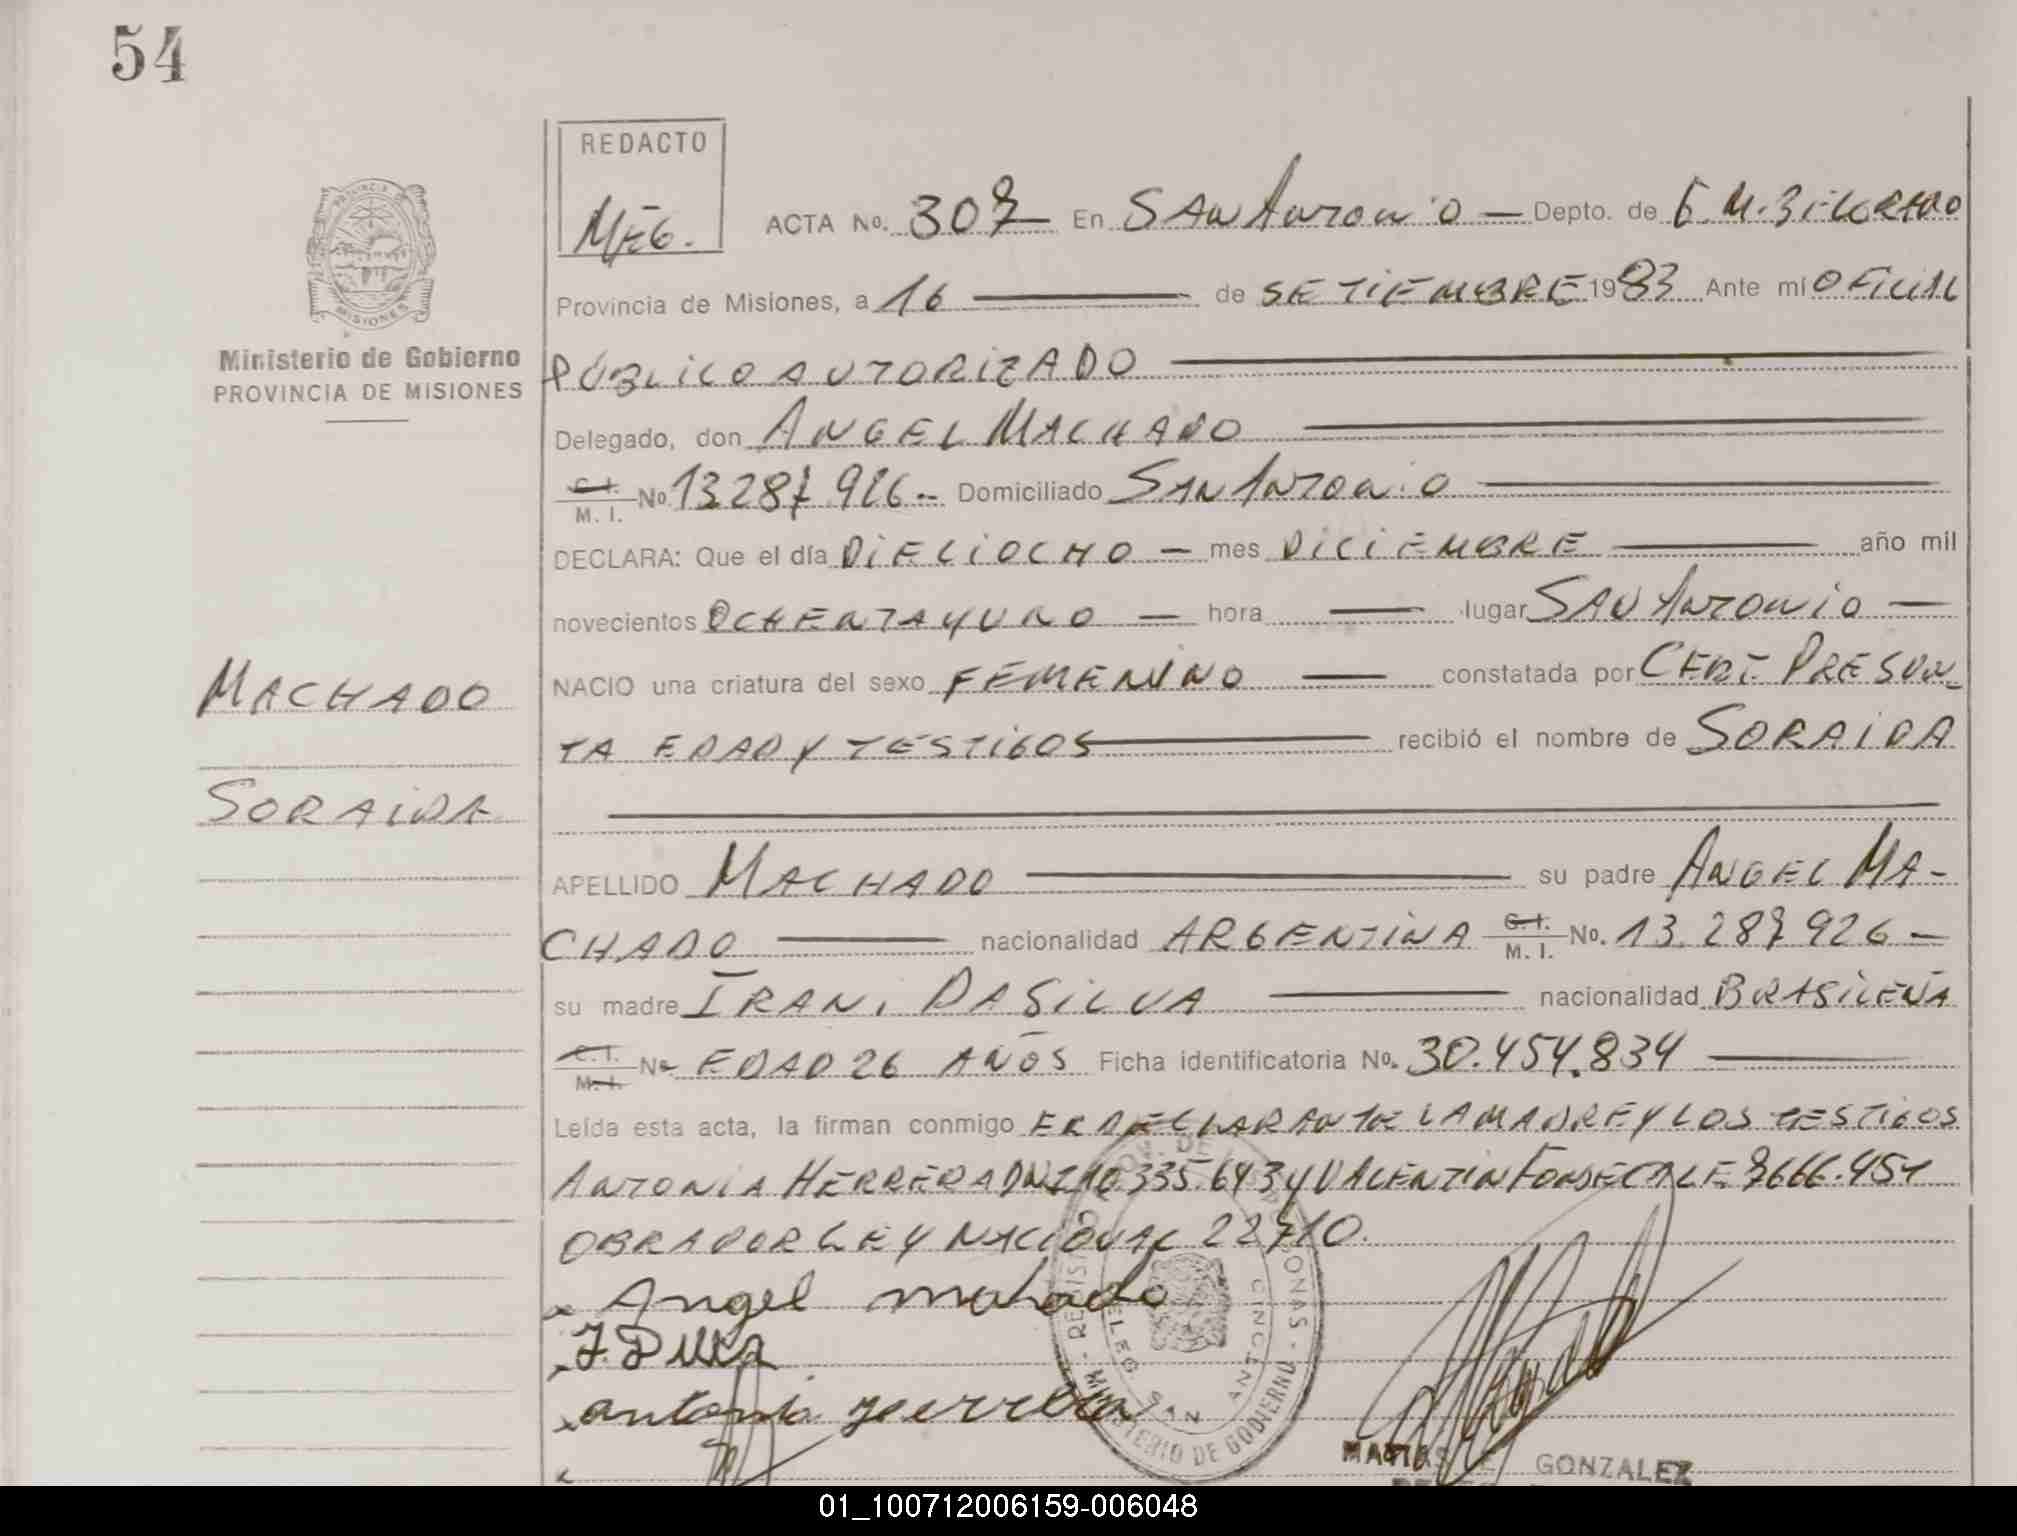 54
REDACTO
MEG.
ACTA No. 307 — En SAN ANTONIO — Depto. de G. M. BELGRANO
PROVINCIA
MISIONES
Provincia de Misiones, a 16 — de SETIEMBRE 1983 Ante mí OFICIAL
Ministerio de Gobierno
PROVINCIA DE MISIONES
PÚBLICO AUTORIZADO —
Delegado, don ANGEL MACHADO —
C. I. / M. I. No. 13287.926-- Domiciliado SAN ANTONIO —
DECLARA: Que el día DIECIOCHO — mes DICIEMBRE — año mil
novecientos OCHENTA Y UNO — hora — lugar SAN ANTONIO —
NACIO una criatura del sexo FEMENINO — constatada por CERT. PRESUN-
MACHADO
TA EDAD Y TESTIGOS — recibió el nombre de SORAIDA
SORAIDA
APELLIDO MACHADO — su padre ANGEL MA-
CHADO — nacionalidad ARGENTINA C. I. / M. I. No. 13.287926 —
su madre IRANI DA SILVA — nacionalidad BRASILEÑA
C. I. / M. I. No. EDAD 26 AÑOS Ficha identificatoria No. 30.454.834 —
Leída esta acta, la firman conmigo EL DECLARANTE LA MADRE Y LOS TESTIGOS
ANTONIA HERRERA DNI 10.335.643 y VALENTIN FONSECA LE 7666.451
OBRADOR LEY NACIONAL 22710.
Angel machado
antonia herrera
MINISTERIO DE GOBIERNO
DELEG. SAN ANTONIO CINCT
MATIAS GONZALEZ
01_100712006159-006048